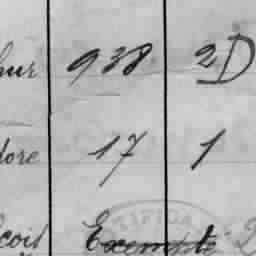 hur 938 2D
dore 17 1
coit Exempté 2